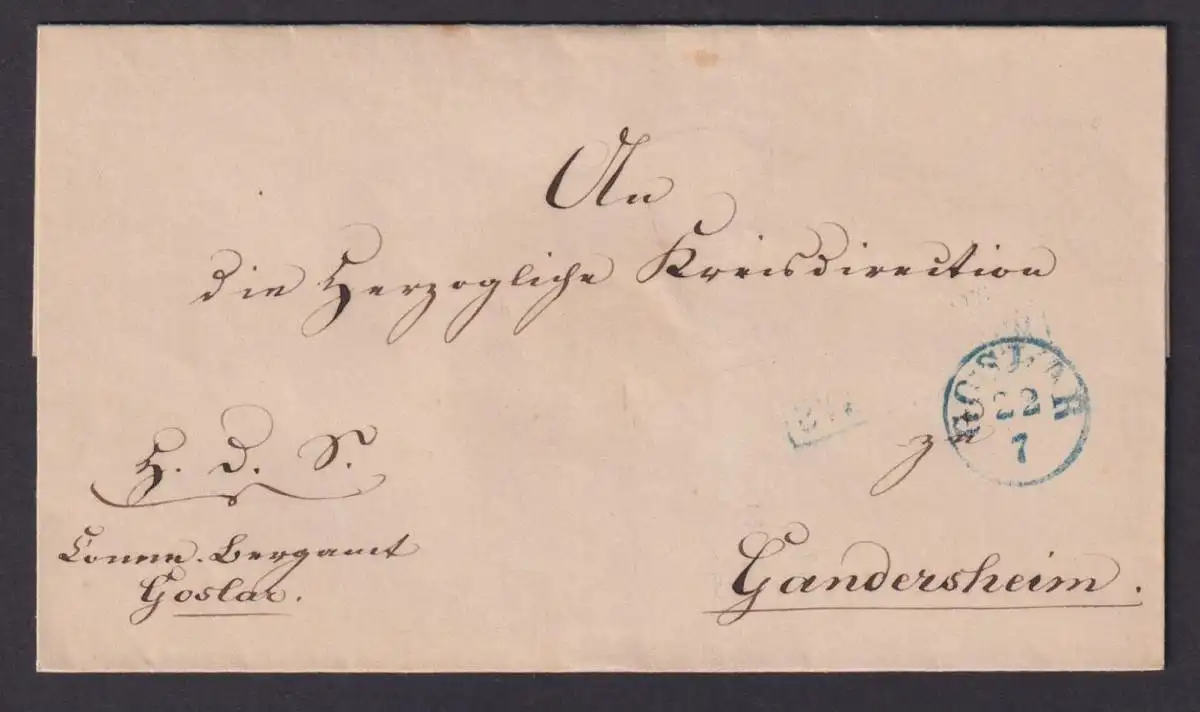 An
die Herzogliche Kreisdirection
zu
Gandersheim.
H. D. S.
Comm. Bergamt
Goslar.
GOSLAR
22
7